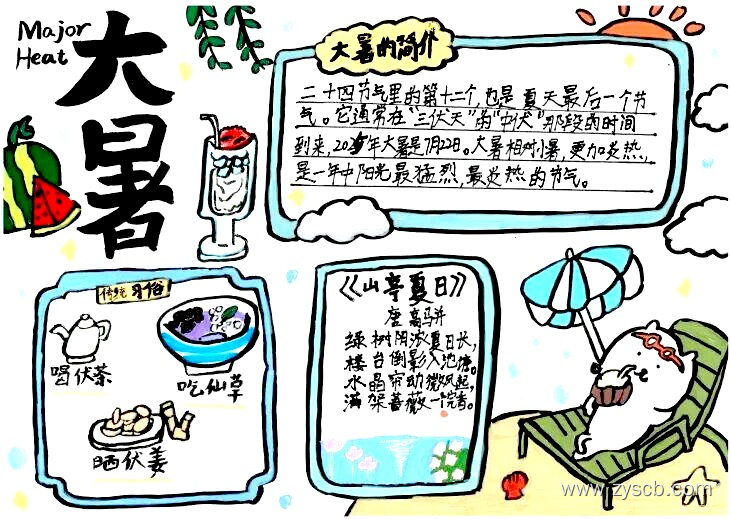 Major
Heat
大暑
大暑的简介
二十四节气里的第十二个,也是夏天最后一个节
气。它通常在“三伏天”的“中伏”那段的时间
到来,20年大暑是7月22日。大暑相对小暑,更加炎热,
是一年中阳光最猛烈,最炎热的节气。
传统习俗
喝伏茶
吃仙草
晒伏姜
《山亭夏日》
唐 高骈
绿树阴浓夏日长,
楼台倒影入池塘。
水晶帘动微风起,
满架蔷薇一院香。
www.zyscb.com